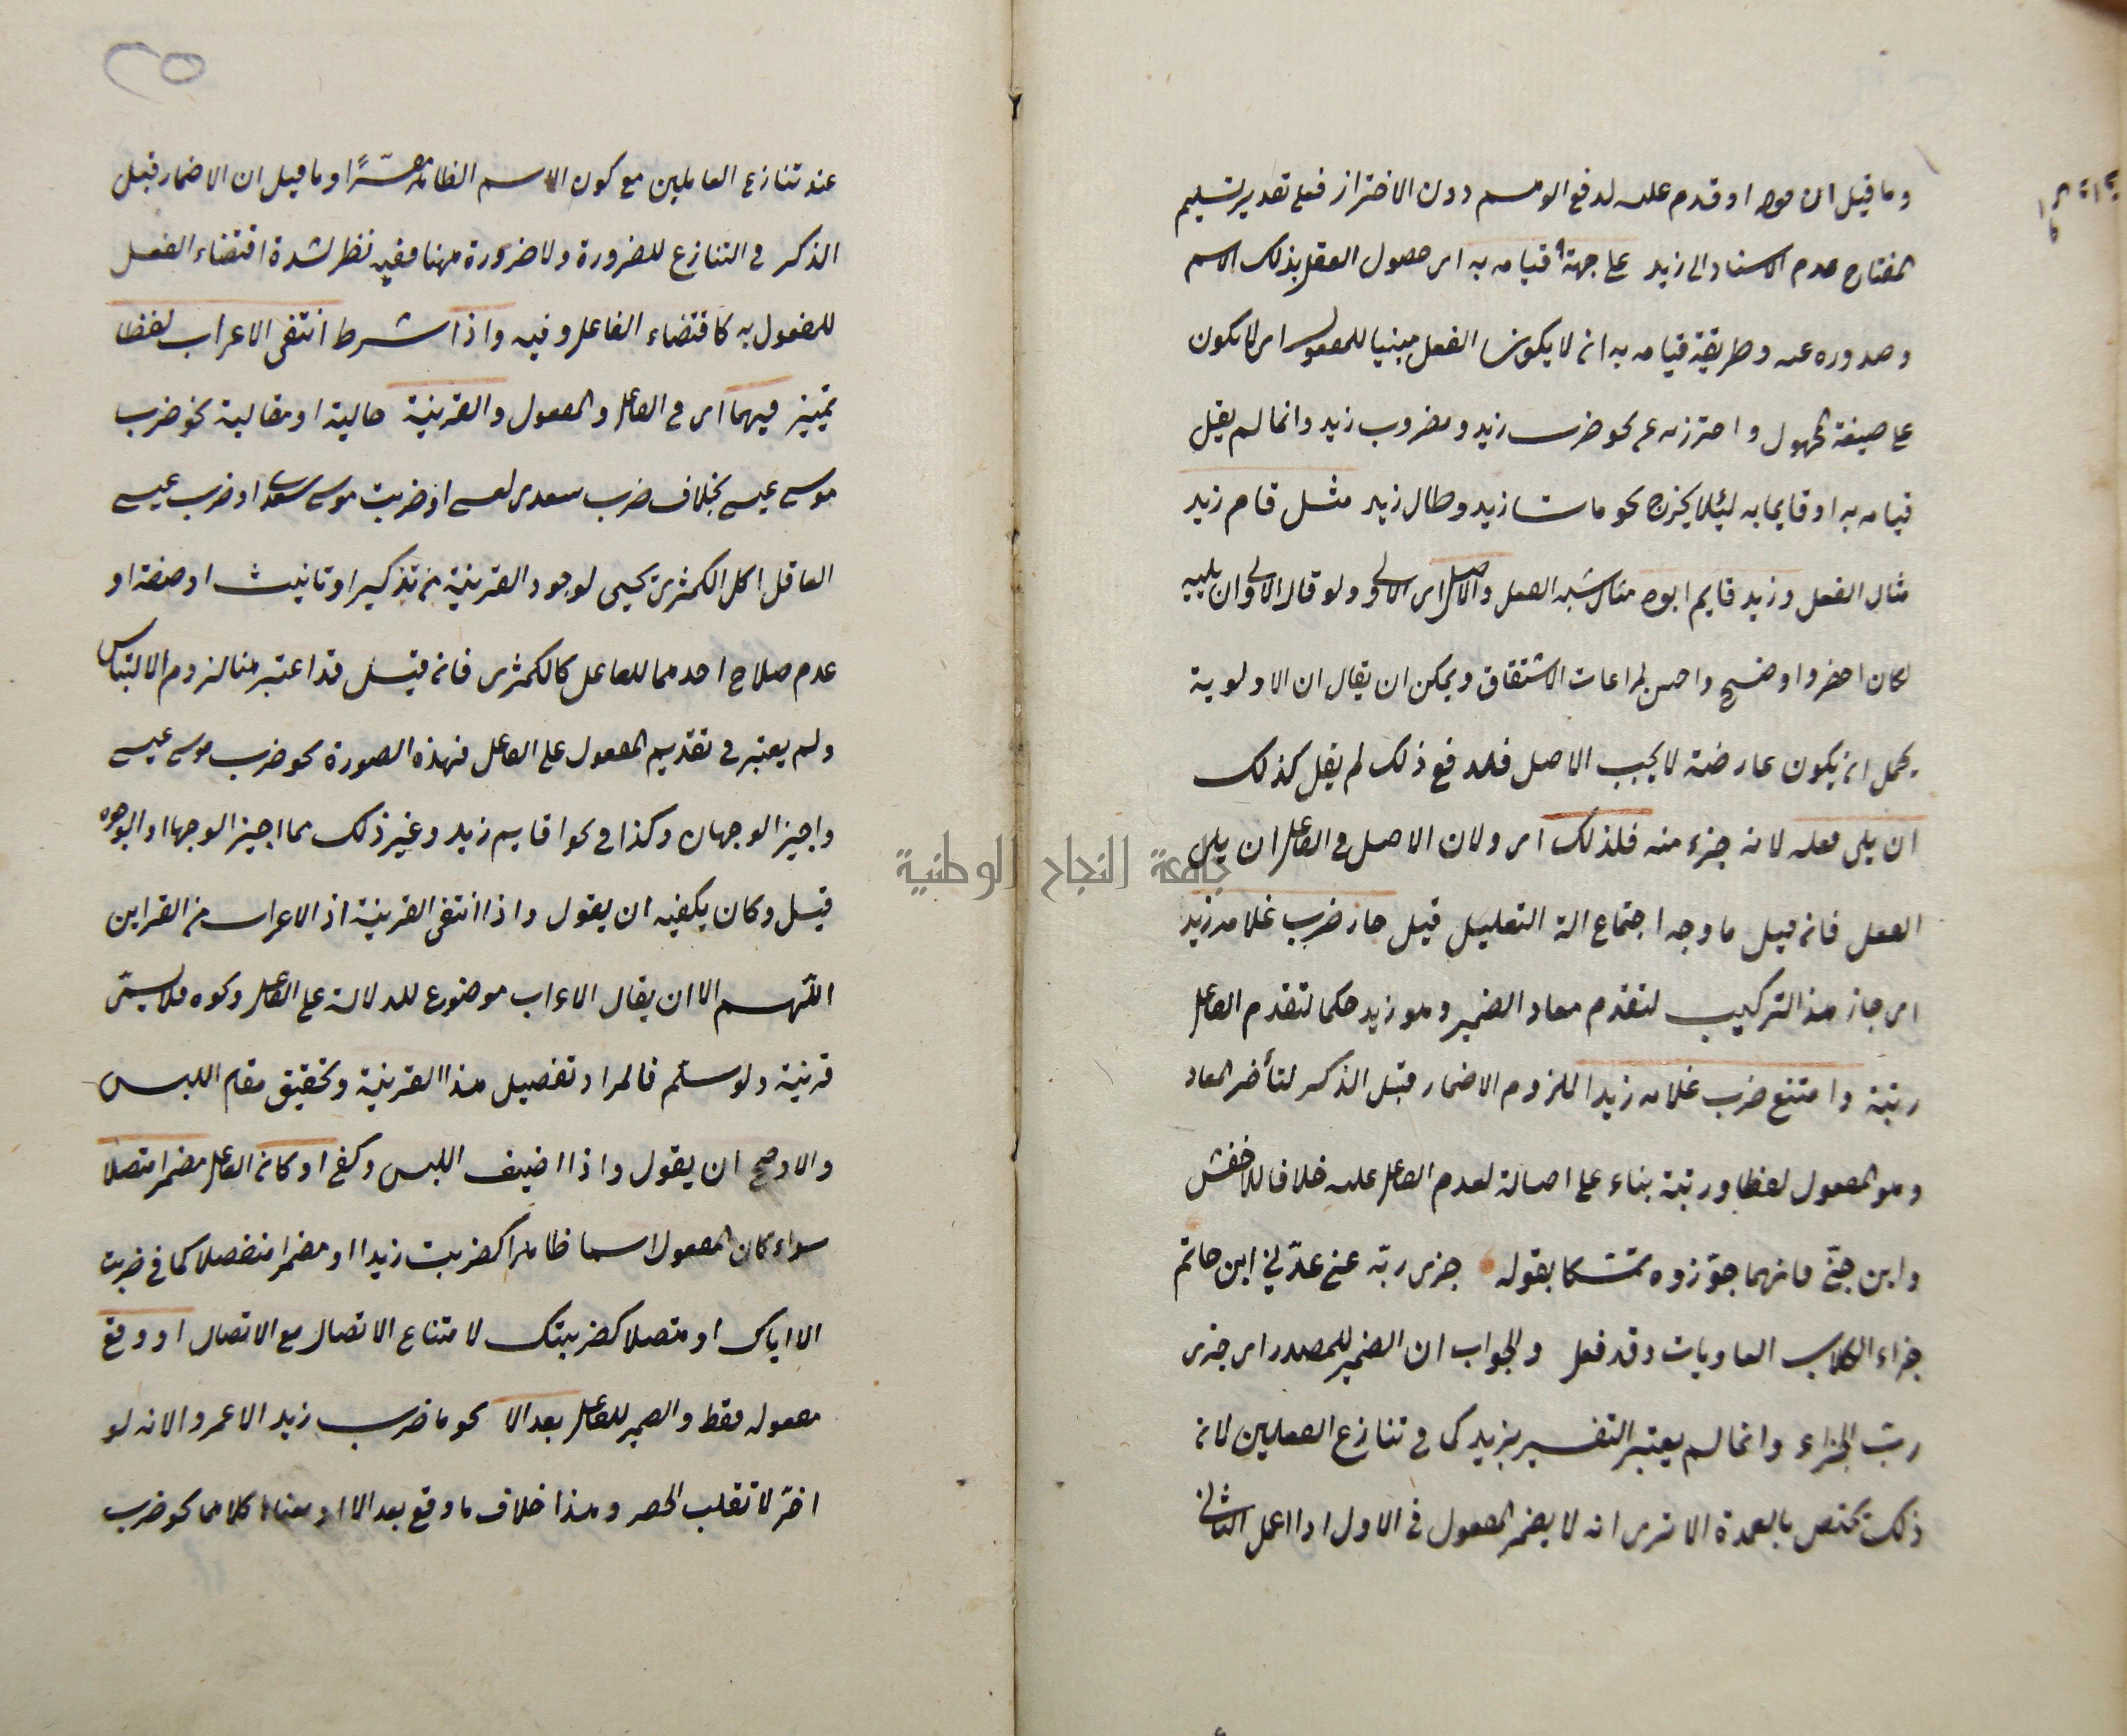 وما قيل ان قوله او قدم عليه لدفع الوهم دون الاحتراز فعلى تقدير تسليم
المفتاح عدم الاسناد الى زيد على جهة قيامه به اى حصول الفعل بذلك الاسم
وصدوره عنه وطريقة قيامه به ان لا يكون الفعل مبنيا للمفعول اى لا يكون
على صيغة المجهول واحترز به عن نحو ضرب زيد ومضروب زيد وانما لم يقل
قيامه به او قايما به ليئلا يخرج نحو مات زيد وطال زيد مثل قام زيد
مثال الفعل وزيد قايم ابوه مثال شبه الفعل والاصل اى الاولى ولو قال الاولى ان يليه
لكان احضر واوضح واحسن لمراعات الاشتقاق ويمكن ان يقال ان الاولوية
يحمل ان يكون عارضة لا يجب الاصل فلدفع ذلك لم يقل كذلك
ان يلى فعله لانه جزء منه فلذلك اى ولان الاصل فى الفاعل ان يلى
الفعل فان قيل ما وجه اجتماع التعليل قيل جاز ضرب غلامه زيد
اى جاز هذا التركيب لتقدم معاد الضمير وهو زيد حكما لتقدم الفاعل
رتبة وامتنع ضرب غلامه زيدا للزوم الاضمار قبل الذكر لتأخر المعاد
وهو المفعول لفظا ورتبة بناء على اصالة تقدم الفاعل عليه خلافا للاخفش
وابن جنّى فانهما جوّزوه تمسّكا بقوله جزى ربّه عنى عدّى ابن حاتم
جزاء الكلاب العاويات وقد فعل والجواب ان الضمير للمصدر اى جزى
ربّ الجزاء وانما لم يعتبر التفسير بزيد كما فى تنازع الفعلين لان
ذلك يختص بالعمدة الا ترى انه لا يضمر المفعول فى الاول اذا اعمل الثانى
عند تنازع العاملين مع كون الاسم الظاهر مفسّرًا وما قيل ان الاضمار قبل
الذكر فى التنازع للضرورة ولا ضرورة ههنا ففيه نظر لشدة اقتضاء الفعل
للمفعول به كاقتضاء الفاعل وفيه واذا شرط انتفى الاعراب لفظا
تمييز فيهما اى فى الفاعل والمفعول والقرينة حالية او مقالية نحو ضرب
موسى عيسى بخلاف ضرب سعدى عيسى او ضربت موسى سعدى او ضرب عيسى
العاقل اكل الكمثرى يحيى لوجود القرينة من تذكير او تانيث او صفة او
عدم صلاح احدهما للفاعل كالكمثرى فان قيل قد اعتبر هنا لزوم الالتباس
ولم يعتبر فى تقديم المفعول على الفاعل فهذه الصورة نحو ضرب موسى عيسى
واجيز الوجهان وكذا فى نحو اقايم زيد وغير ذلك مما اجيز الوجها او الوجوه
قيل وكان يكفيه ان يقول واذا انتفى القرينة اذ الاعراب من القراين
اللّهم الا ان يقال الاعراب موضوع للدلالة على الفاعل ونحوه فلا يسمّى
قرينة ولو سلّم فالمراد تفصيل هذا القرينة وتحقيق مقام اللبس
والاوضح ان يقول واذا اضيف اللبس وكفى او كان الفاعل مضمرا متصلا
سواء كان المفعول اسما ظاهرا كضربت زيدا او مضمرا منفصلا كما فى ضربت
الا اياك او متصلا كضربتك لامتناع الاتصال مع الاتصال او وقع
مفعوله فقط والضمير للفاعل بعد الا نحو ما ضرب زيد الا عمروا لانه لو
اخّر لا نقلب الحصر وهذا خلاف ما وقع بعد الا او معناها كلاهما نحو ضرب
جامعة النجاح الوطنية